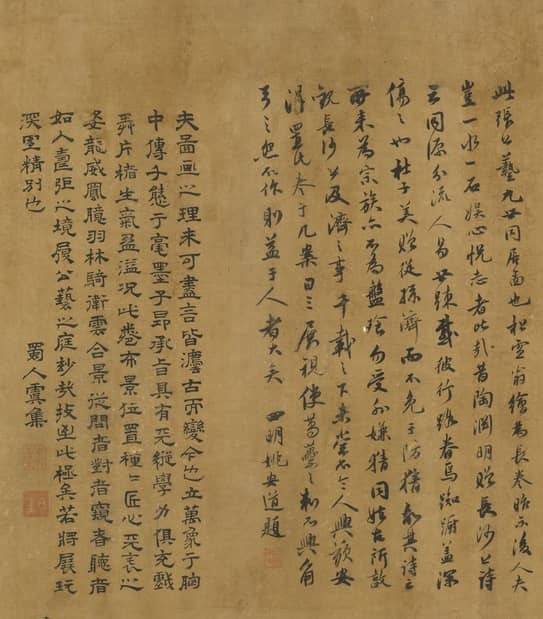 此張公藝九世同居圖也松雪翁繪為長卷貽示後人夫
豈一水一石娛心悅志者比哉昔陶淵明贈長沙公詩
云同源分流人易世疎慨彼行路者烏踟躕蓋深
傷之也杜子美贈從孫濟而不免于防猜嘉其詩云
所來為宗族亦不為盤飧勿受外嫌猜同姓古所敦
觀長沙公及濟之事千載之下未嘗不令人興歎安
得置此卷于几案日之展視使葛藟之刺不興角
弓之怨不作則益于人者大矣 四明姚安道題
夫圖畫之理未可盡言皆遵古而變今也立萬象于胸
中傳千態于毫墨子昂承旨具有天縱學力俱充戲
弄片楮生氣盈溢況此卷布景位置種種匠心天之
姿龍威鳳臆羽林騎衛雲合景從聞者對者窺者聽者
如入之境履公藝之庭妙哉技至此極矣若將展玩
深宜精別也
蜀人虞集